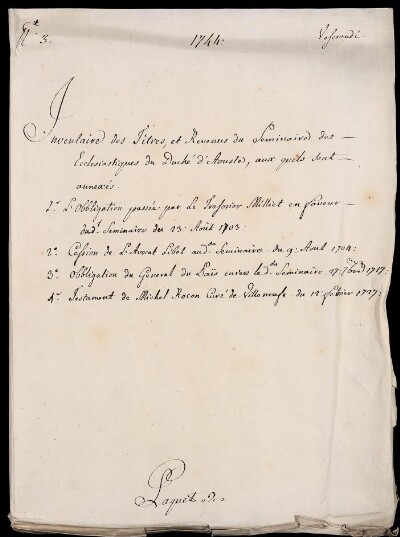 N.° 3.
1744.
Vescovadi
Inventaire des Titres, et Revenus du Seminaire des
Ecclesiastiques du Duché d'Aouste, aux quels sont
annexés.
1.° L'Obbligation passée par Le Tresorier Milliet en faveur
dud.t Seminaire du 23. Août 1703.
2.° Cession de L'Avocat Libot aud. Seminaire du 9. Avril 1704.
3.° Obligation du General du Païs envers led. Seminaire 17. 1717.
4.° Testament de Michel Rocon Curé de Villeneufe du 12 febvrier 1727.
Paquet